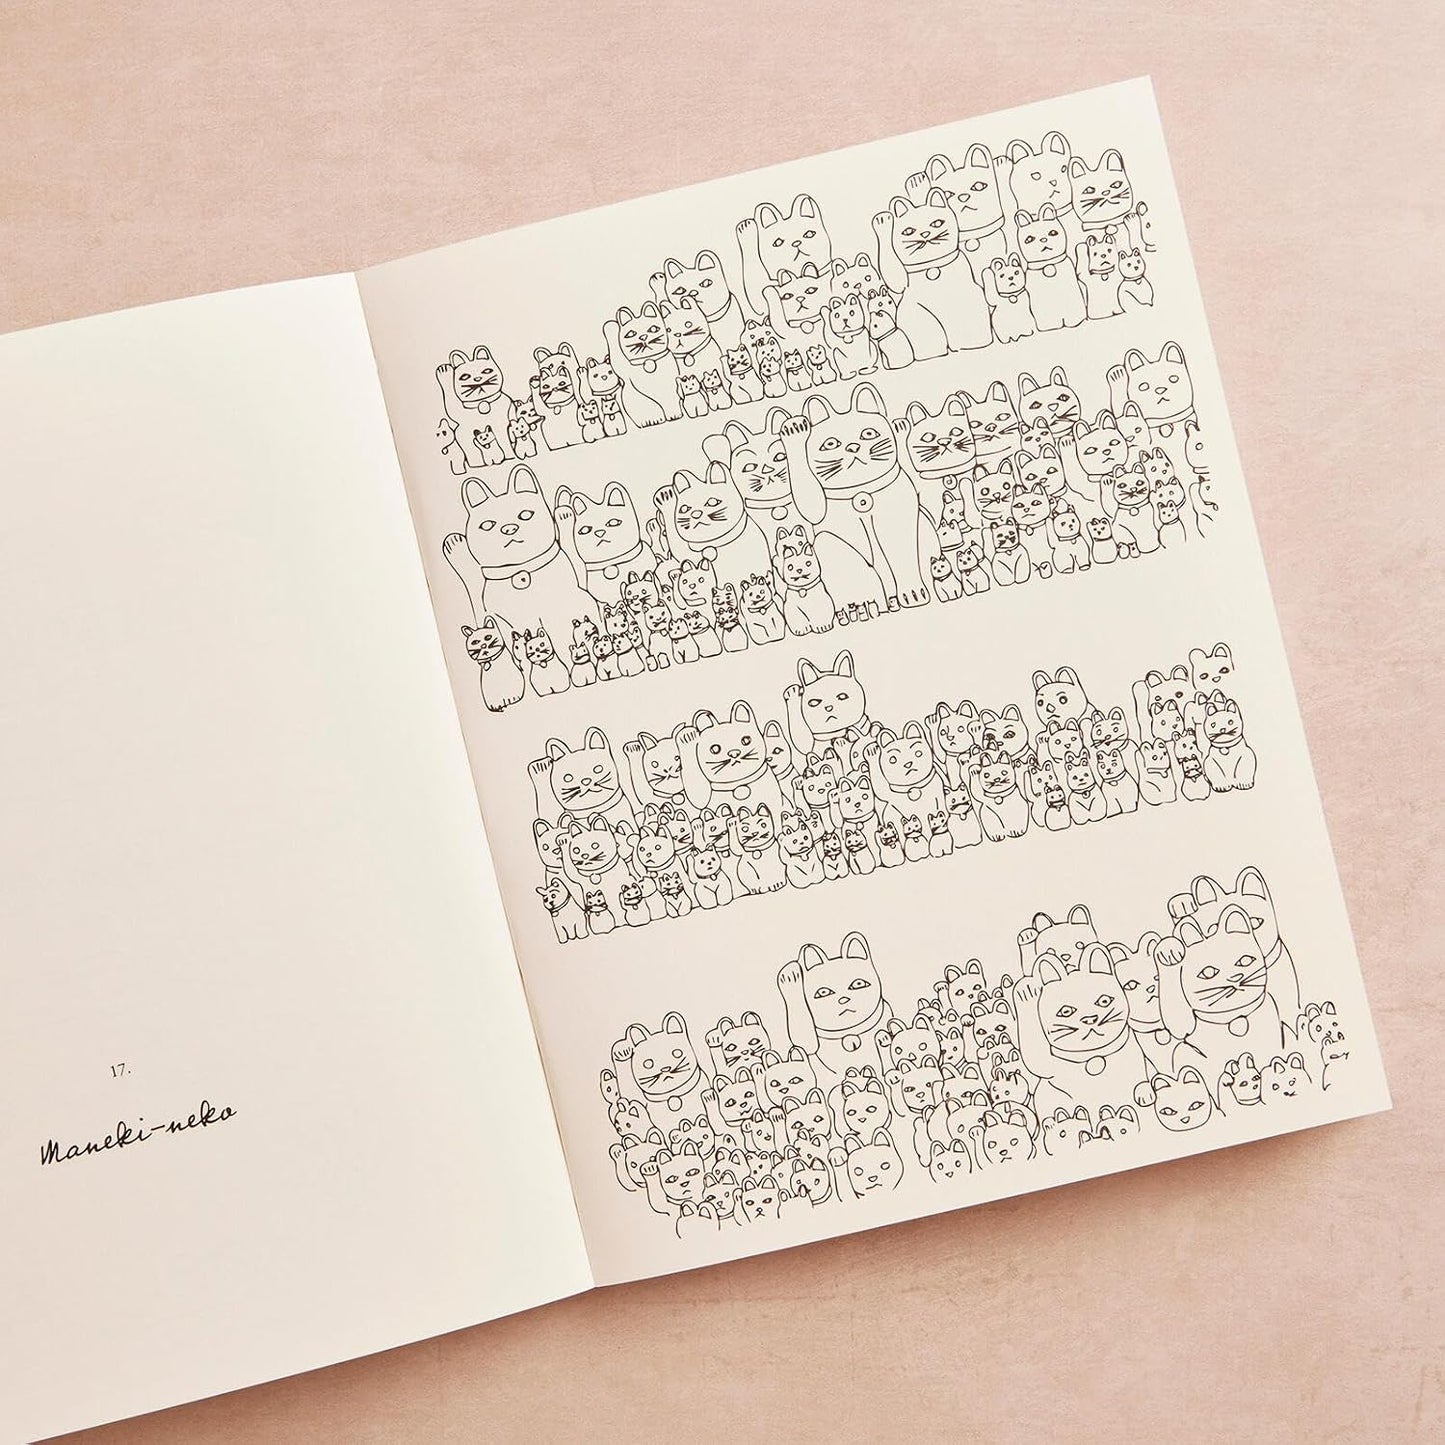 17.
Maneki-neko